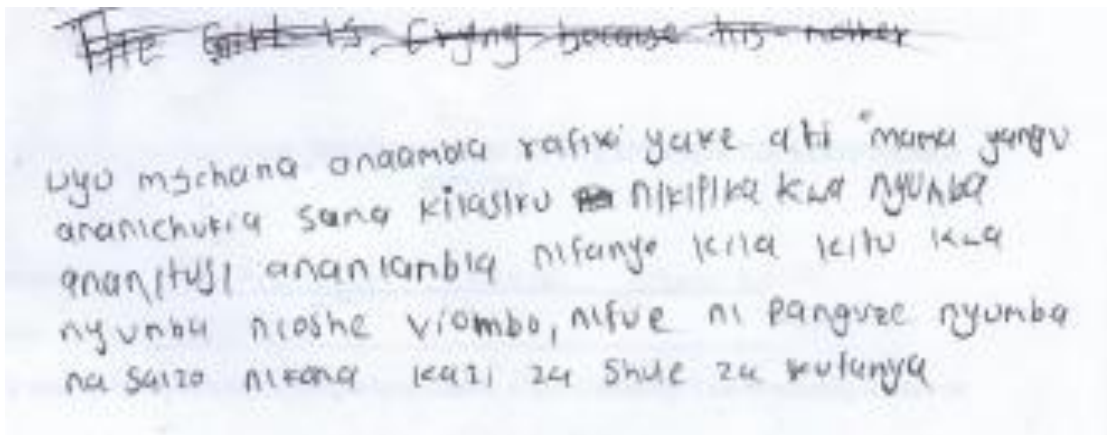 The Girl is Crying because his mother
uyo mschana anaambia rafiki yake ati "mama yangu
ananichukia sana kilasiku nikifika kwa nyunba
ananitusi ananiambia nifanye kila kitu kwa
nyunba nioshe viombo, nifue ni panguze nyumba
na saizo nikona kazi za shule za kufanya